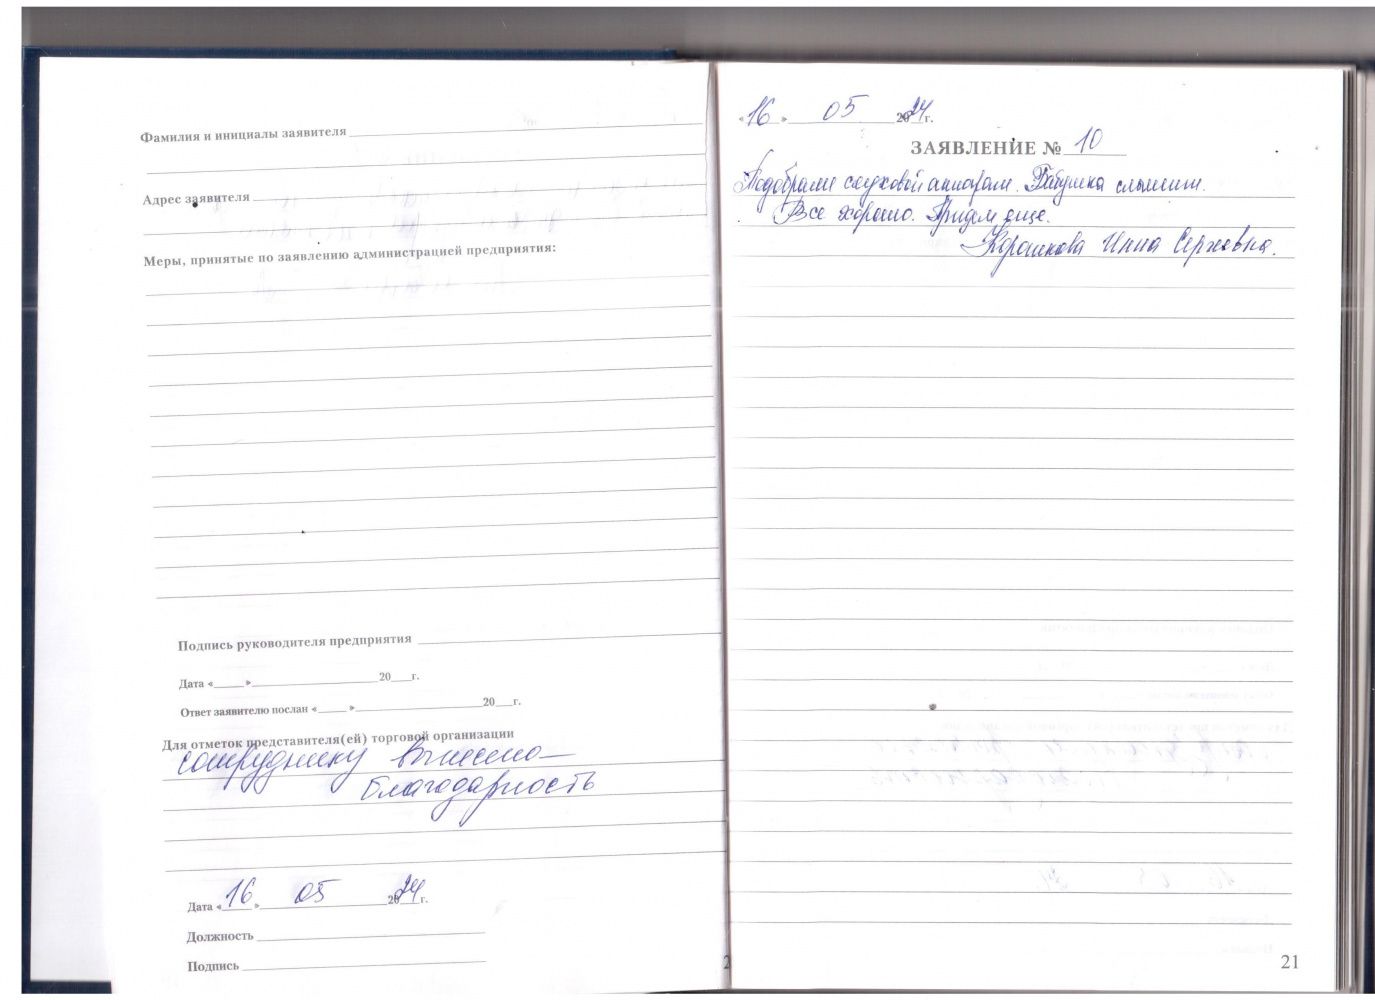 Фамилия и инициалы заявителя
Адрес заявителя
Меры, принятые по заявлению администрацией предприятия:
Подпись руководителя предприятия
Дата «   »   20   г.
Ответ заявителю послан «   »   20   г.
Для отметок представителя(ей) торговой организации
сотруднику вынесено
благодарность
Дата «16» 05 2024 г.
Должность
Подпись
«16» 05 2024 г.
ЗАЯВЛЕНИЕ № 10
Подобрали слуховой аппарат. Бабушка слышит.
Все хорошо. Придем еще.
Инна Сергеевна.
21